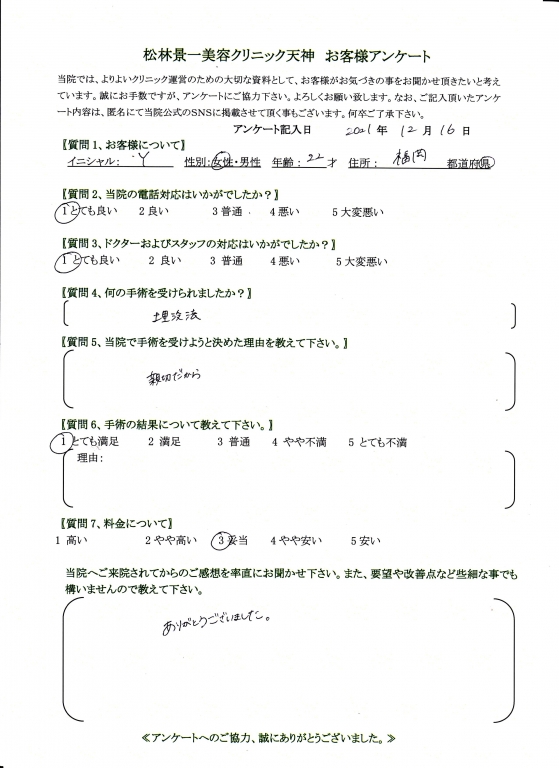 松林景一美容クリニック天神　お客様アンケート
当院では、よりよいクリニック運営のための大切な資料として、お客様がお気づきの事をお聞かせ頂きたいと考え
ています。誠にお手数ですが、アンケートにご協力下さい。よろしくお願い致します。なお、ご記入頂いたアンケ
ート内容は、匿名にて当院公式のSNSに掲載させて頂く事もございます。何卒ご了承下さい。
アンケート記入日　2021 年 12 月 16 日
〖質問1、お客様について〗
イニシャル： Y　性別:女性・男性　年齢： 22 才　住所： 福岡　都道府県
〖質問2、当院の電話対応はいかがでしたか？〗
1 とても良い　2 良い　3 普通　4 悪い　5 大変悪い
〖質問3、ドクターおよびスタッフの対応はいかがでしたか？〗
1 とても良い　2 良い　3 普通　4 悪い　5 大変悪い
〖質問4、何の手術を受けられましたか？〗
埋没法
〖質問5、当院で手術を受けようと決めた理由を教えて下さい。〗
親切だから
〖質問6、手術の結果について教えて下さい。〗
1 とても満足　2 満足　3 普通　4 やや不満　5 とても不満
理由：
〖質問7、料金について〗
1 高い　2 やや高い　3 妥当　4 やや安い　5 安い
当院へご来院されてからのご感想を率直にお聞かせ下さい。また、要望や改善点など些細な事でも
構いませんので教えて下さい。
ありがとうございました。
≪アンケートへのご協力、誠にありがとうございました。≫